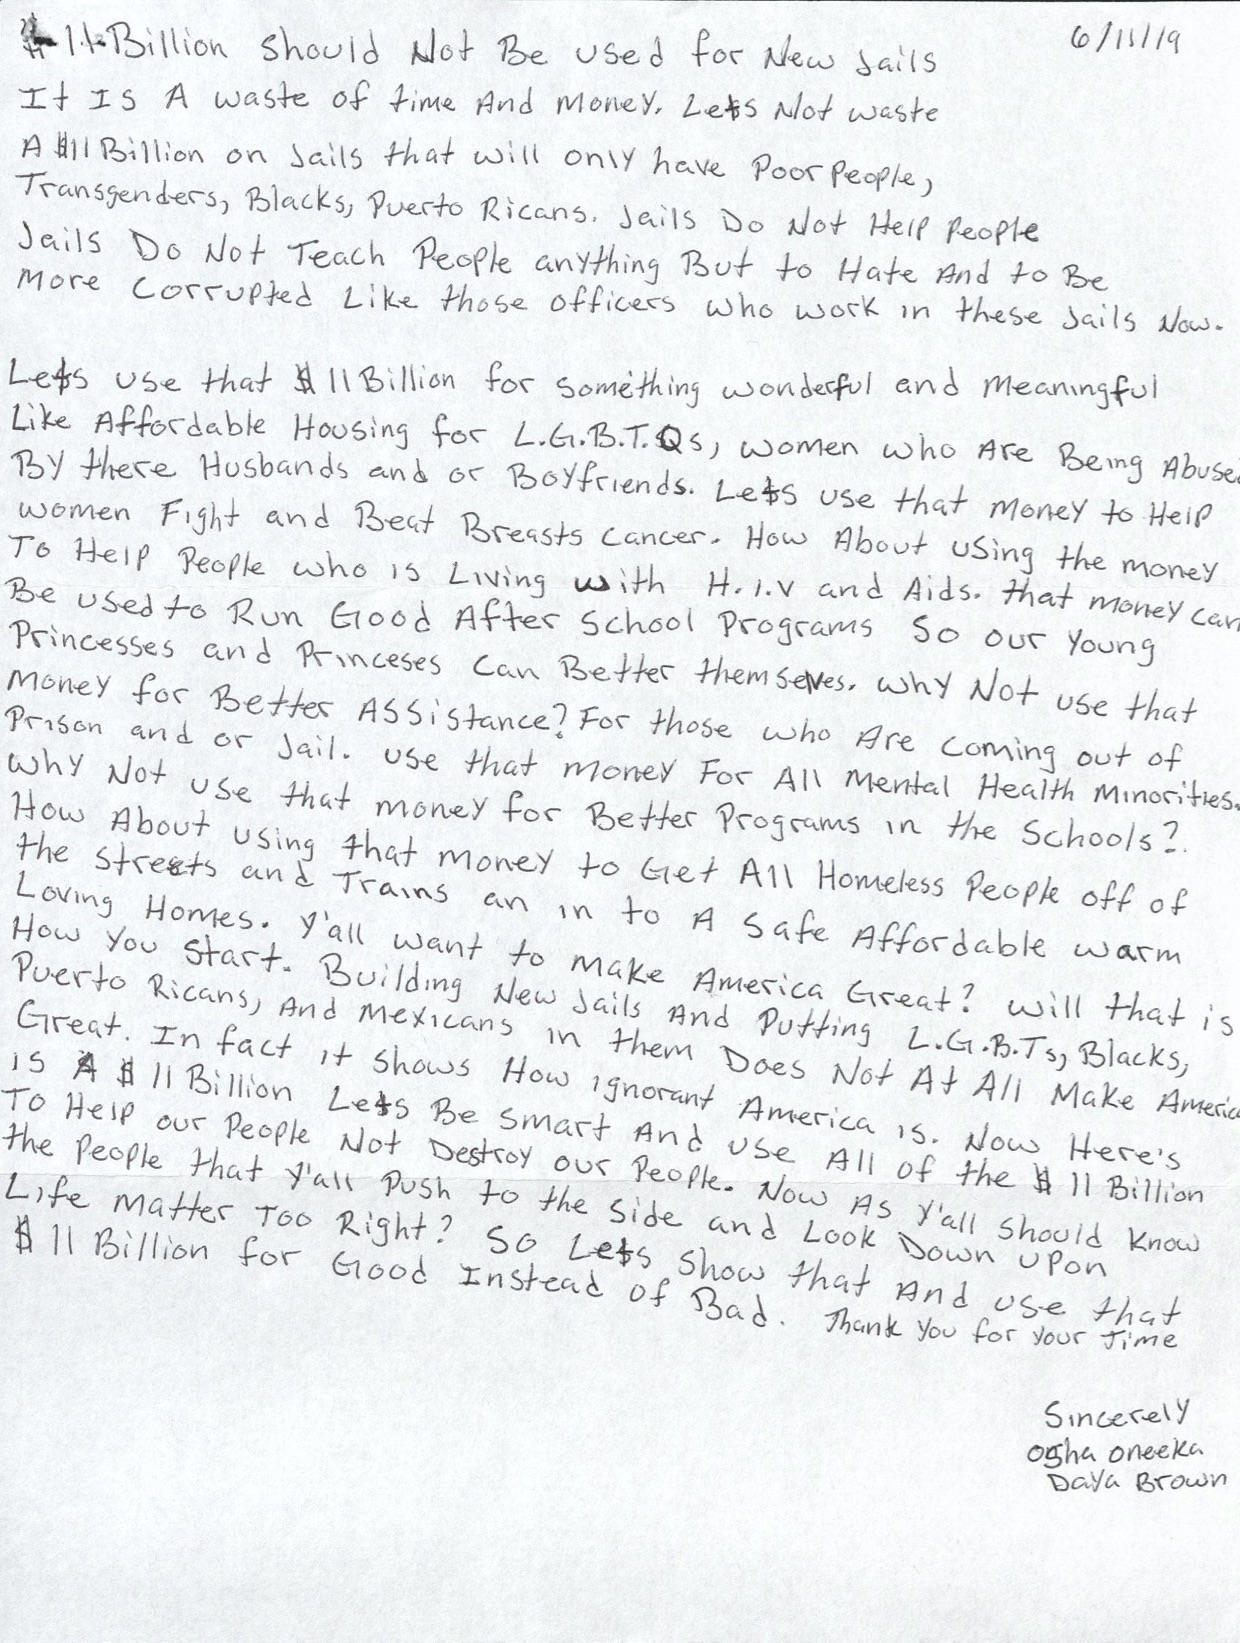 6/11/19
$11 Billion should Not Be used for New Jails
It Is A waste of time And Money. Lets Not waste
A $11 Billion on Jails that will only have Poor People,
Transgenders, Blacks, Puerto Ricans. Jails Do Not Help People
Jails Do Not Teach People anything But to Hate And to Be
More Corrupted Like those officers who work in these Jails Now.
Lets use that $11 Billion for something wonderful and Meaningful
Like Affordable Housing for L.G.B.T.Qs, women who Are Being Abuse
By there Husbands and or Boyfriends. Lets use that Money to Help
women Fight and Beat Breasts Cancer. How About using the money
To Help People who is Living with H.I.V and Aids. that money can
Be used to Run Good After School Programs So our Young
Princesses and Princeses Can Better themselves. why Not use that
Money for Better Assistance? For those who Are coming out of
Prison and or Jail. use that money For All Mental Health Minorities.
why Not use that money for Better Programs in the Schools?
How About using that money to Get All Homeless People off of
the streets and Trains an in to A Safe Affordable warm
Loving Homes. Y'all want to make America Great? will that is
How You Start. Building New Jails And Putting L.G.B.Ts, Blacks,
Puerto Ricans, And Mexicans in them Does Not At All Make America
Great. In fact it shows How ignorant America is. Now Here's
is A $11 Billion Lets Be smart And use All of the $11 Billion
To Help our People Not Destroy our People. Now As Y'all should know
the People that Y'all Push to the side and Look Down upon
Life Matter Too Right? So Lets show that And use that
$11 Billion for Good Instead of Bad. Thank You for your Time
Sincerely
Osha Oneeka
Daya Brown